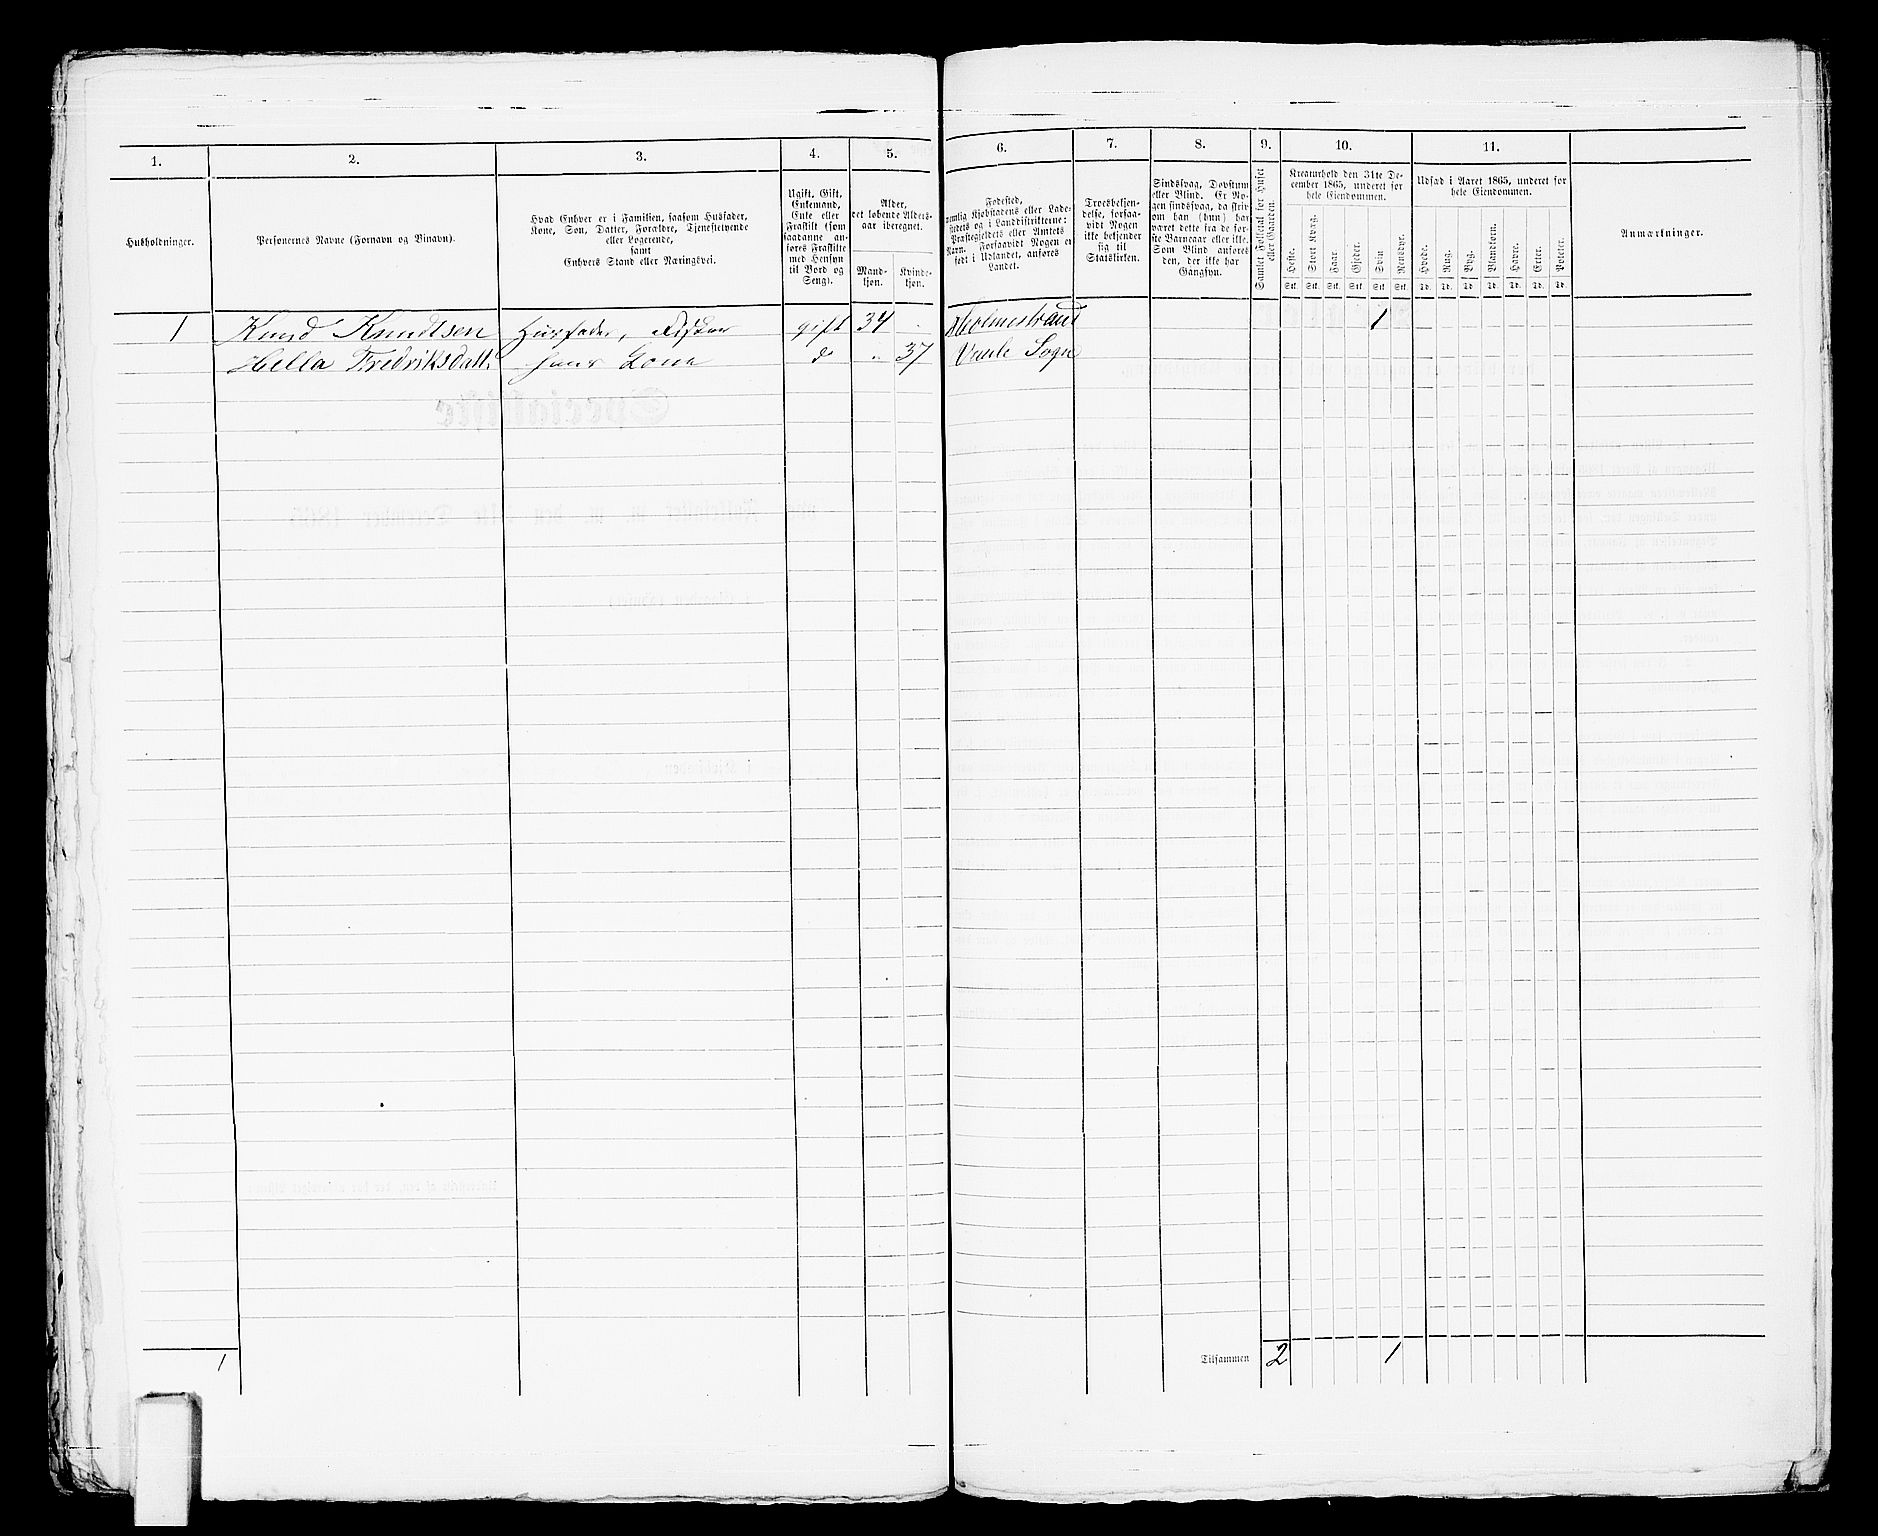 1. 2. 3. 4. 5. 6. 7. 8. 9. 10. 11.
Husholdninger.
Personernes Navne (Fornavn og Binavn).
Hvad Enhver er i Familien, saasom Husfader,
Kone, Søn, Datter, Forældre, Tjenestetyende
eller Logerende,
samt
Enhvers Stand eller Næringsvei.
Ugift, Gift,
Enkemand,
Enke eller
Fraskilt (som
saadanne an-
føres Fraskilte
med Hensyn
til Bord og
Seng).
Alder,
det løbende Alders-
aar iberegnet.
Mand-
kjøn.
Kvinde-
kjøn.
Fødested,
nemlig Kjøbstadens eller Lade-
stedets og i Landdistrikterne:
Præstegjeldets eller Amtets
Navn. Forsaavidt Nogen er
født i Udlandet, anføres
Landet.
Troesbekjen-
delse, forsaa-
vidt Nogen
ikke bekjender
sig til
Statskirken.
Sindssvag, Døvstum
eller Blind. Er No-
gen sindssvag, da skriv
om han (hun) har
været dette fra de før-
ste Barneaar eller ikke.
Som Blind anføres
den, der ikke har
Gangsyn.
Samlet Folketal for Huset
eller Gaarden.
Kreaturhold den 31te De-
cember 1865, underet for
hele Eiendommen.
Heste. Stort Kvæg. Faar Gjeder. Svin Rensdyr.
Stk. Stk. Stk. Stk. Stk. Stk.
Udsæd i Aaret 1865, underet for
hele Eiendommen.
Hvede. Rug. Byg. Blandkorn. Havre. Erter. Poteter.
Td. Td. Td. Td. Td. Td. Td.
Anmærkninger.
1 Knud Knudtsen Husfader, Fisker gift 34 Holmestrand 1
Hella Fredriksdatt. hans Kone d 37 Sogn
1 Tilsammen 2 1